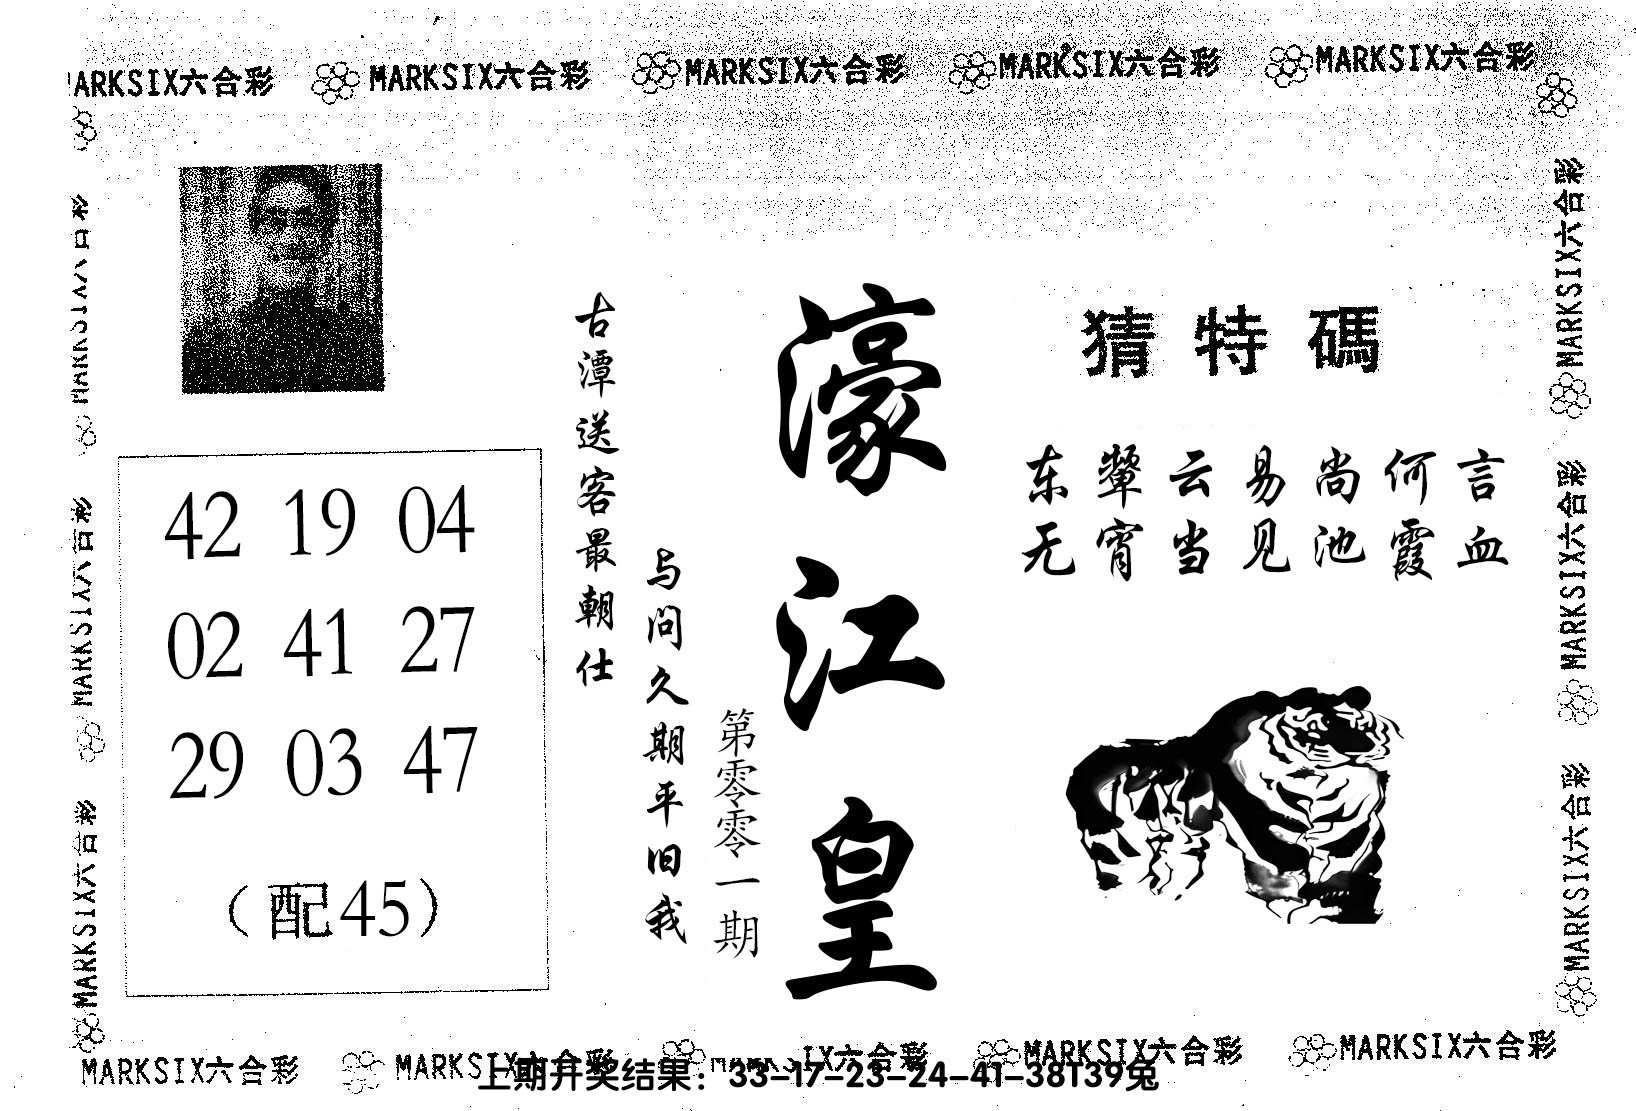 MARKSIX六合彩 MARKSIX六合彩 MARKSIX六合彩 MARKSIX六合彩
MARKSIX六合彩
MARKSIX六合彩
MARKSIX六合彩
42 19 04
02 41 27
29 03 47
（配45）
古潭送客最朝仕
与问久期平旧我
第零零一期
濠江皇
猜特碼
东颦云易尚何言
无宵当见池霞血
MARKSIX六合彩
MARKSIX六合彩
MARKSIX六合彩
MARKSIX六合彩 MARKSIX六合彩 MARKSIX六合彩 MARKSIX六合彩
上期开奖结果：33-17-23-24-41-38T39兔